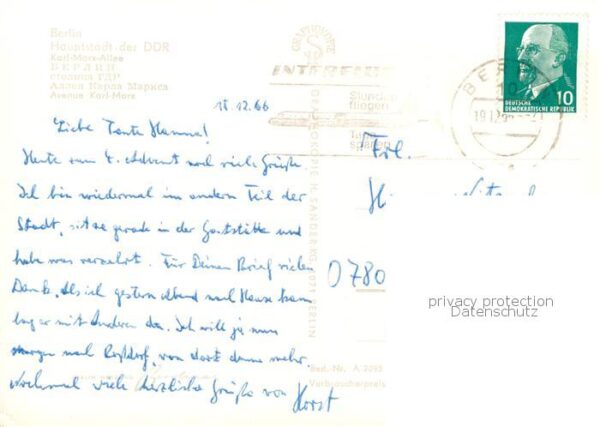 Berlin
Hauptstadt der DDR
Karl-Marx-Allee
БЕРЛИН
столица ГДР
Аллея Карла Маркса
Avenue Karl-Marx
12.66
Liebe Tante Hanna!
Heute zum 4. Advent noch viele Grüße.
Ich bin wiedermal im andern Teil der
Stadt, sitze gerade in der Gaststätte und
habe was verzehrt. Für Deinen Brief vielen
Dank. Als ich gestern abend nach Hause kam
lag er mit Anderen da. Ich will ja nun
morgen nach, von dort dann mehr.
Nochmal viele herzliche Grüße von Horst
GRAPHOKOPIE
INTERFLUG
Stunden
fliegen
Tage
sparen
GRAPHOKOPIE H. SANDER KG, 1071 BERLIN
Best.-Nr. A 2093
Verbraucherpreis
BERLIN
10
19.12.66
DEUTSCHE
DEMOKRATISCHE REPUBLIK
10
Frl.
0780
privacy protection
Datenschutz